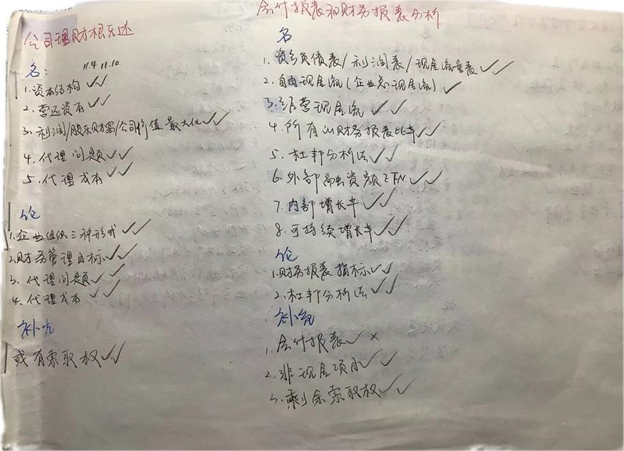 公司理财概述
名：
1.资本结构 ✓✓
2.营运资本 ✓✓
3.利润/股东财富/公司价值最大化 ✓✓
4.代理问题 ✓✓
5.代理成本 ✓✓
论
1.企业组织三种形式 ✓✓
2.财务管理目标 ✓✓
3.代理问题 ✓✓
4.代理成本 ✓✓
补充
或有索取权 ✓✓
会计报表和财务报表分析
名
1.资产负债表/利润表/现金流量表 ✓✓
2.自由现金流(企业总现金流) ✓
3.经营现金流 ✓✓
4.所有的财务报表比率 ✓✓
5.杜邦分析法 ✓✓
6.外部融资额EFN ✓✓
7.内部增长率 ✓✓
8.可持续增长率 ✓✓
论
1.财务报表指标 ✓✓
2.杜邦分析法 ✓✓
补充
1.会计报表 ✓ ×
2.非现金项目 ✓✓
3.剩余索取权 ✓✓